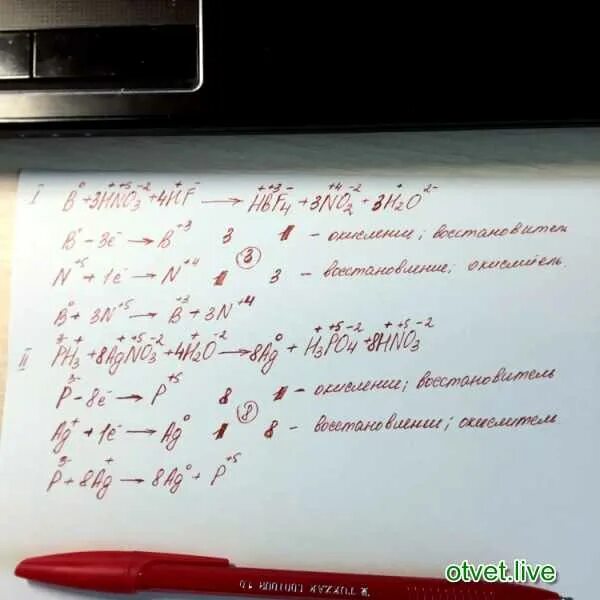 I B⁰ + 3H⁺N⁺⁵O₃⁻² + 4H⁺F⁻ → H⁺B⁺³F₄⁻ + 3N⁺⁴O₂⁻² + 3H₂⁺O²⁻
B⁰ - 3e⁻ → B⁺³ 3 1 - окисление; восстановитель
③
N⁺⁵ + 1e⁻ → N⁺⁴ 1 3 - восстановление; окислитель.
B⁰ + 3N⁺⁵ → B⁺³ + 3N⁺⁴
II P³⁻H₃⁺ + 8Ag⁺N⁺⁵O₃⁻² + 4H₂⁺O⁻² → 8Ag⁰ + H₃⁺P⁺⁵O₄⁻² + 8H⁺N⁺⁵O₃⁻²
P³⁻ - 8e⁻ → P⁺⁵ 8 1 - окисление; восстановитель
⑧
Ag⁺ + 1e⁻ → Ag⁰ 1 8 - восстановление; окислитель.
P³⁻ + 8Ag⁺ → 8Ag⁰ + P⁺⁵
otvet.live